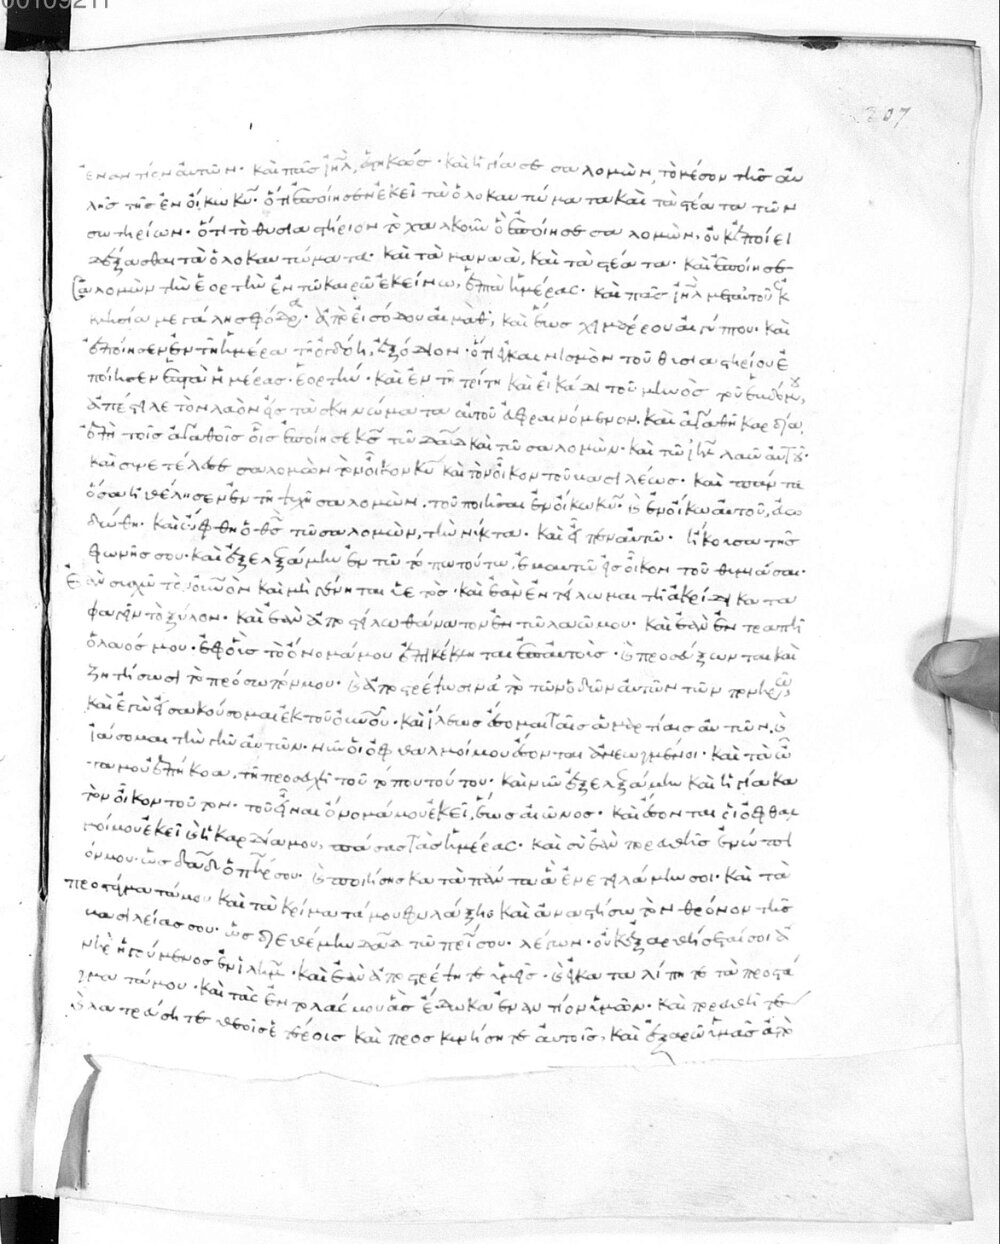 207
ἐναντίον αὐτῶν. καὶ πᾶς ἰηλ, ἑστηκώς. καὶ ἡγίασε σαλομὼν, τὸ μέσον τῆς αὐ
λῆς τῆς ἐν οἴκω κυ. ὅτι ἐποίησεν ἐκεῖ τὰ ὁλοκαυτώματα καὶ τὰ στέατα τῶν
σωτηρίων. ὅτι τὸ θυσιαστήριον τὸ χαλκοῦν ὃ ἐποίησε σαλομὼν, οὐκ ἐποίει
δέξασθαι τὰ ὁλοκαυτώματα. καὶ τὰ μαναὰ, καὶ τὰ στέατα. καὶ ἐποίησε
σαλομὼν τὴν ἑορτὴν ἐν τῶ καιρῶ ἐκείνω, ἑπτὰ ἡμέρας. καὶ πᾶς ἰηλ μεταὐτοῦ ἐκ
κλησία μεγάλη σφόδρα. ἀπὸ εἰσόδου αἰμὰθ, καὶ ἕως χειμάρρου αἰγύπτου. καὶ
ἐποίησεν ἐν τῆ ἡμέρα τῆ ὀγδόη, ἐξόδιον. ὅτι ἐγκαινισμὸν τοῦ θυσιαστηρίου ἐ
ποίησεν ἑπτὰ ἡμέρας. ἑορτήν. καὶ ἐν τῆ τρίτη καὶ εἰκάδι τοῦ μηνὸς τοῦ ἑβδόμου,
ἀπέστειλε τὸν λαὸν εἰς τὰ σκηνώματα αὐτοῦ εὐφραινόμενον. καὶ ἀγαθῆ καρδία,
ἐπὶ τοῖς ἀγαθοῖς οἷς ἐποίησε κς τῶ δαδ καὶ τῶ σαλομὼν. καὶ τῶ ιηλ λαῶ αὐτοῦ.
καὶ συνετέλεσε σαλομὼν τὸν οἶκον κυ καὶ τὸν οἶκον τοῦ βασιλέως. καὶ πάντα
ὅσα ἠθέλησεν ἐν τῆ ψυχῆ σαλομὼν, τοῦ ποιῆσαι ἐν οἴκω κυ. καὶ ἐν οἴκω αὐτοῦ, εὐω
δώθη. καὶ ὤφθη ὁ θς τῶ σαλομὼν, τὴν νύκτα. καὶ εἶπεν αὐτῶ. ἤκουσα τῆς
φωνῆς σου. καὶ ἐξελεξάμην ἐν τῶ τόπω τούτω, ἐμαυτῶ εἰς οἶκον τοῦ θυμιᾶσαι.
ἐὰν συσχῶ τὸν οὐνὸν καὶ μὴ γένηται ὑετὸς. καὶ ἐὰν ἐντείλωμαι τῆ ἀκρίδι κατα
φαγεῖν τὸ ξύλον. καὶ ἐὰν ἀποστείλω θάνατον ἐν τῶ λαῶ μου. καὶ ἐὰν ἐντραπῆ
ὁ λαός μου. ἐφοἷς τὸ ὄνομά μου ἐπικέκληται ἐπαὐτοῖς. καὶ προσεύξωνται καὶ
ζητήσωσι τὸ πρόσωπόν μου. καὶ ἀποστρέψωσιν ἀπὸ τῶν ὁδῶν αὐτῶν τῶν πονηρῶν,
καὶ ἐγὼ εἰσακούσομαι ἐκ τοῦ οὐνοῦ. καὶ ἵλεως ἔσομαι ταῖς ἁμαρτίαις αὐτῶν. καὶ
ἰάσομαι τὴν γῆν αὐτῶν. νῦν οἱ ὀφθαλμοί μου ἔσονται ἀνεωγμένοι. καὶ τὰ ὦ
τα μου ἐπήκοα, τῆ προσευχῆ τοῦ τόπου τούτου. καὶ νῦν ἐξελεξάμην καὶ ἡγίακα
τὸν οἶκον τοῦτον. τοῦ εἶναι ὄνομά μου ἐκεῖ, ἕως αἰῶνος. καὶ ἔσονται οἱ ὀφθαλ
μοί μου ἐκεῖ καὶ ἡ καρδία μου, πάσας τὰς ἡμέρας. καὶ σὺ ἐὰν πορευθῆς ἐνώπι
όν μου. ὡς δαδ ὁ πηρ σου. καὶ ποιήσης κατὰ πάντα ἃ ἐνετειλάμην σοι. καὶ τὰ
προστάγματά μου καὶ τὰ κρίματά μου φυλάξης καὶ ἀναστήσω τὸν θρόνον τῆς
βασιλείας σου. ὡς διεθέμην δαδ τῶ πρί σου. λέγων. οὐκ ἐξαρθήσεταί σοι ἀ
νὴρ ἡγούμενος ἐν ιηλ. καὶ ἐὰν ἀποστρέψητε ὑμεῖς. καὶ ἐγκαταλίπητε τὰ προστά
γματά μου. καὶ τὰς ἐντολάς μου ἃς ἔδωκα ἐναντίον ὑμῶν. καὶ πορευθῆτε
καὶ λατρεύσητε θεοῖς ἑτέροις καὶ προσκυνήσητε αὐτοῖς, καὶ ἐξαρῶ ὑμᾶς ἀπὸ